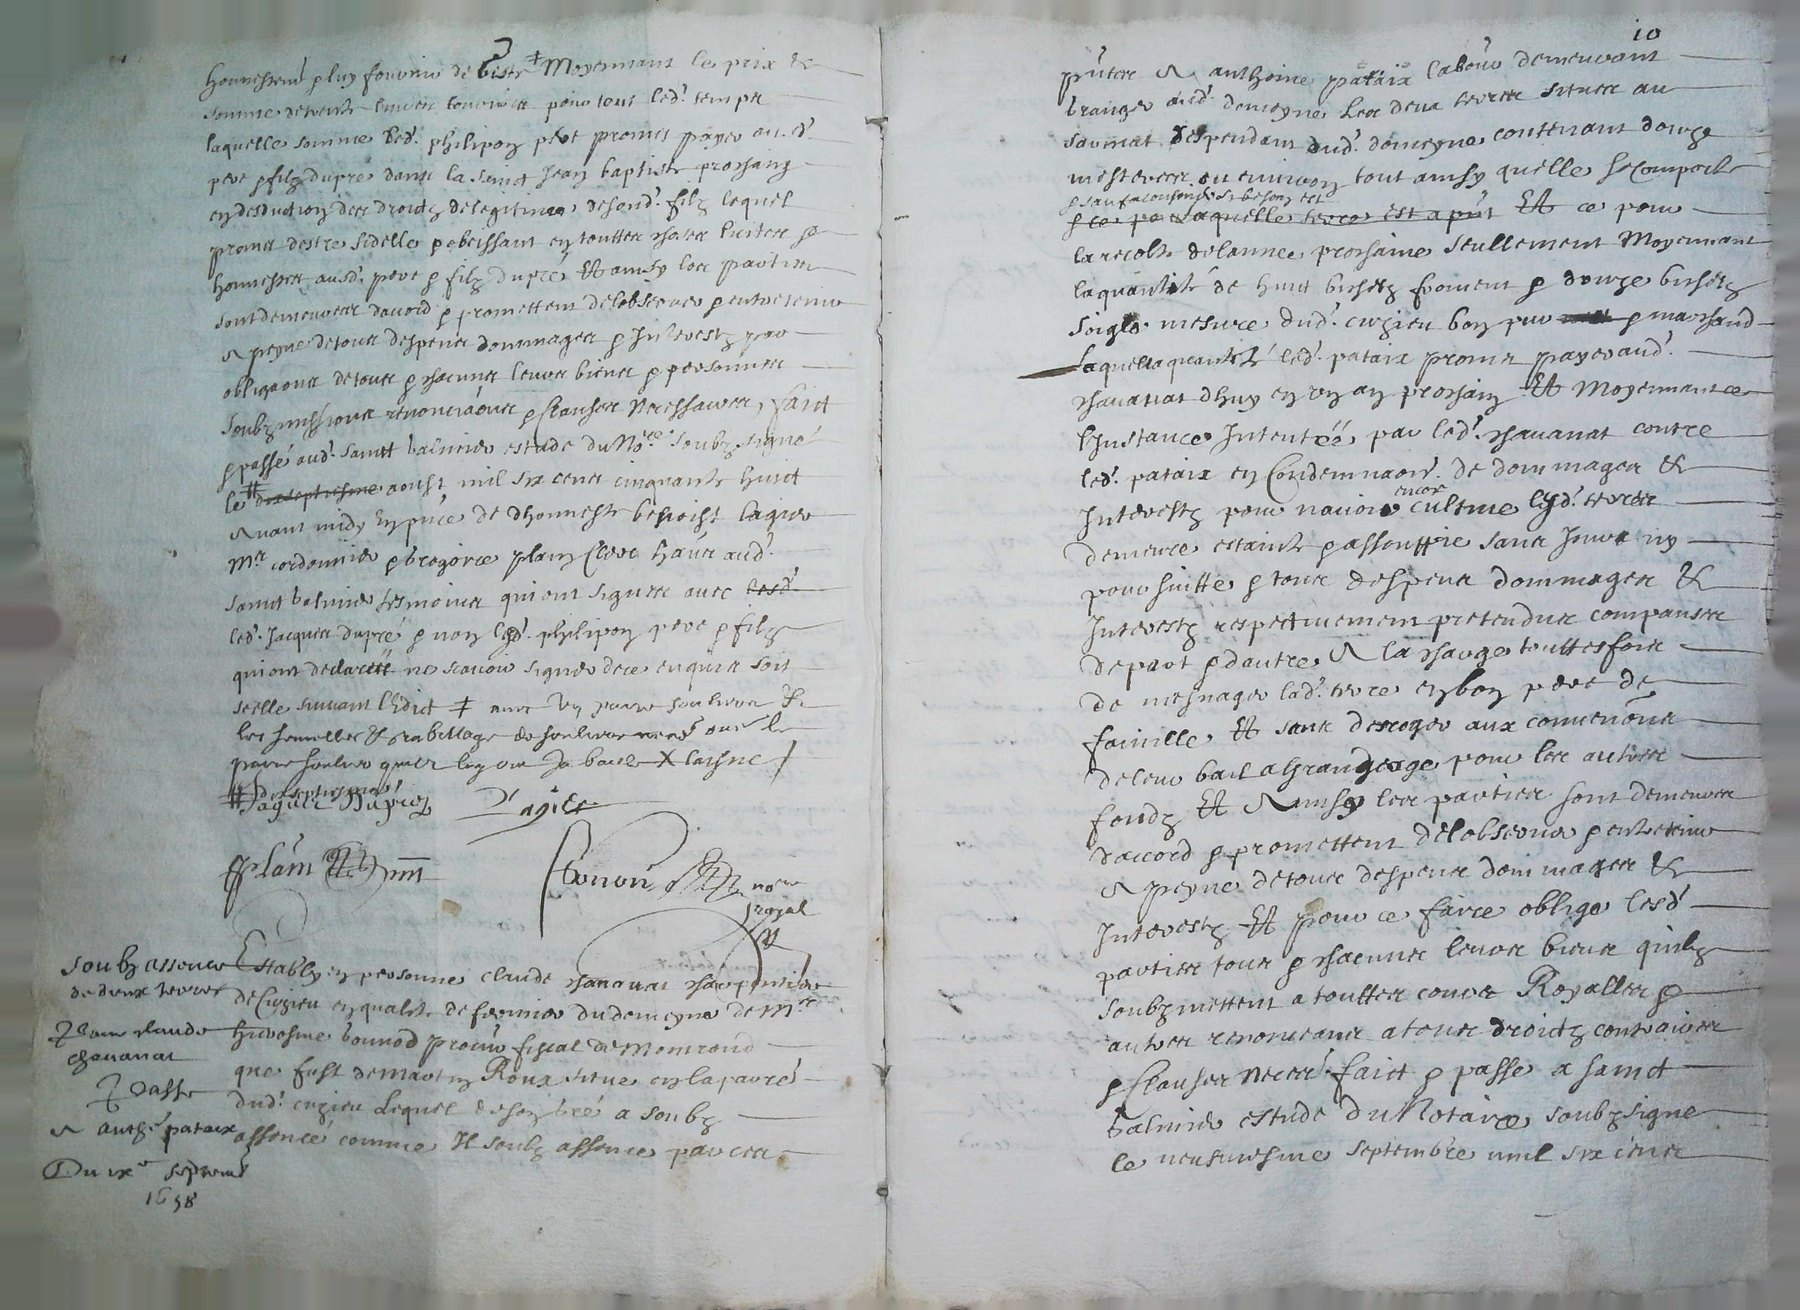 honnestem^t & luy fournir de giste ǂ Moyennant le prix &
somme de trente livres tournois pour tout led. temps
laquelle somme led. philipon pere promet payer ausd.
pere & filz dupré dans la sainct Jean baptiste prochain
en desduction des droictz de legitime de sond. filz lequel
promet destre fidelle & obeissant en touttes choses licites &
honnestes ausd. pere & filz dupré Et ainsy les parties
sont demeurees dacord & promettent de lobserver & entretenir
A peyne de tous despens dommages & Interestz par
obliga̅ons de tous & chacuns leurs biens & personnes
soubzmissions renoncia̅ons & clauses necessaires, faict
& passé aud. sainct balmier estude du No^re soubzsigné
le # dixseptiesme aoust mil six cens cinquante huict
Avant midy En p̅nce de dhonneste benoist lagier
M^e cordonnier & gregoire plain clerc habita̅s aud.
sainct balmier tesmoins qui ont signes avec lesd.
led. Jacques dupré & non lesd. philipon pere & filz
qui ont declaré ne scavoir signer de ce enquis soit
seelle suivant lEdict ǂ avec un paire soulier &
les semelles & rabillage de soulier outre le
paire soulier X laisné
# dixseptiesme
Jacques Dupré Lagier
Plain
notr^e
royal
Soubz assence
de deux terres
Pour claude
chavanat
Passe
A anth^e pataix
Du ix^e septemb
1658
Estably en personne claude chavanat charpentier
de Cuzieu en qualité de fermier du domeyne de M^e
hierosme bounod procur^r fiscal de Montrond
que fust de martin Roux situé en la parr^e
dud. cuzieu Lequel de son gré a soubz
assencé comme Il soubz assence par ces
10
p̅ntes A anthoine pataix labour^r demeurant
granger aud. domeyne Les deux terres situes au
saumat despendant dud. domeyne contenant douze
mesterees ou environ tout ainsy quelle se comporte
& sans la confiner si besoing est
& ce par laquelle terre est a p̅nt Et ce pour
la recolte de lannee prochaine seullement Moyennant
la quantité de huict bichetz froment & douze bichetz
soigle mesure dud. cuzieu bon pur & marchand
laquelle quantité led. pataix promet payer aud.
chavanat dhuy en un an prochain Et Moyennant ce
linstance Intentéé par led. chavanat contre
led. pataix en Condemna̅on de dommages &
Interestz pour navoir encor cultivé lesd. terres
demeure estainte & assouppie sans Jouir ny
poursuitte & tous despens dommages &
Interestz respectivement pretendus compansés
de part & dautre A la charge touttesfois
de mesnager lad. terre en bon pere de
famille Et sans desroger aux conventions
de leur bail a Grangeage pour les autres
fondz Et Ainsy les parties sont demeurees
daccord & promettent de lobserver & entretenir
A peyne de tous despens dommages &
Interestz Et pour ce faire oblige lesd.
parties tous & chacuns leurs biens quilz
soubzmettent a touttes cours Royalles &
autres renoncans a tous droictz contraires
& Clauses neces^res faict & passé a sainct
Galmier estude du Notaire soubzsigne
le neufviesme septembre mil six cens